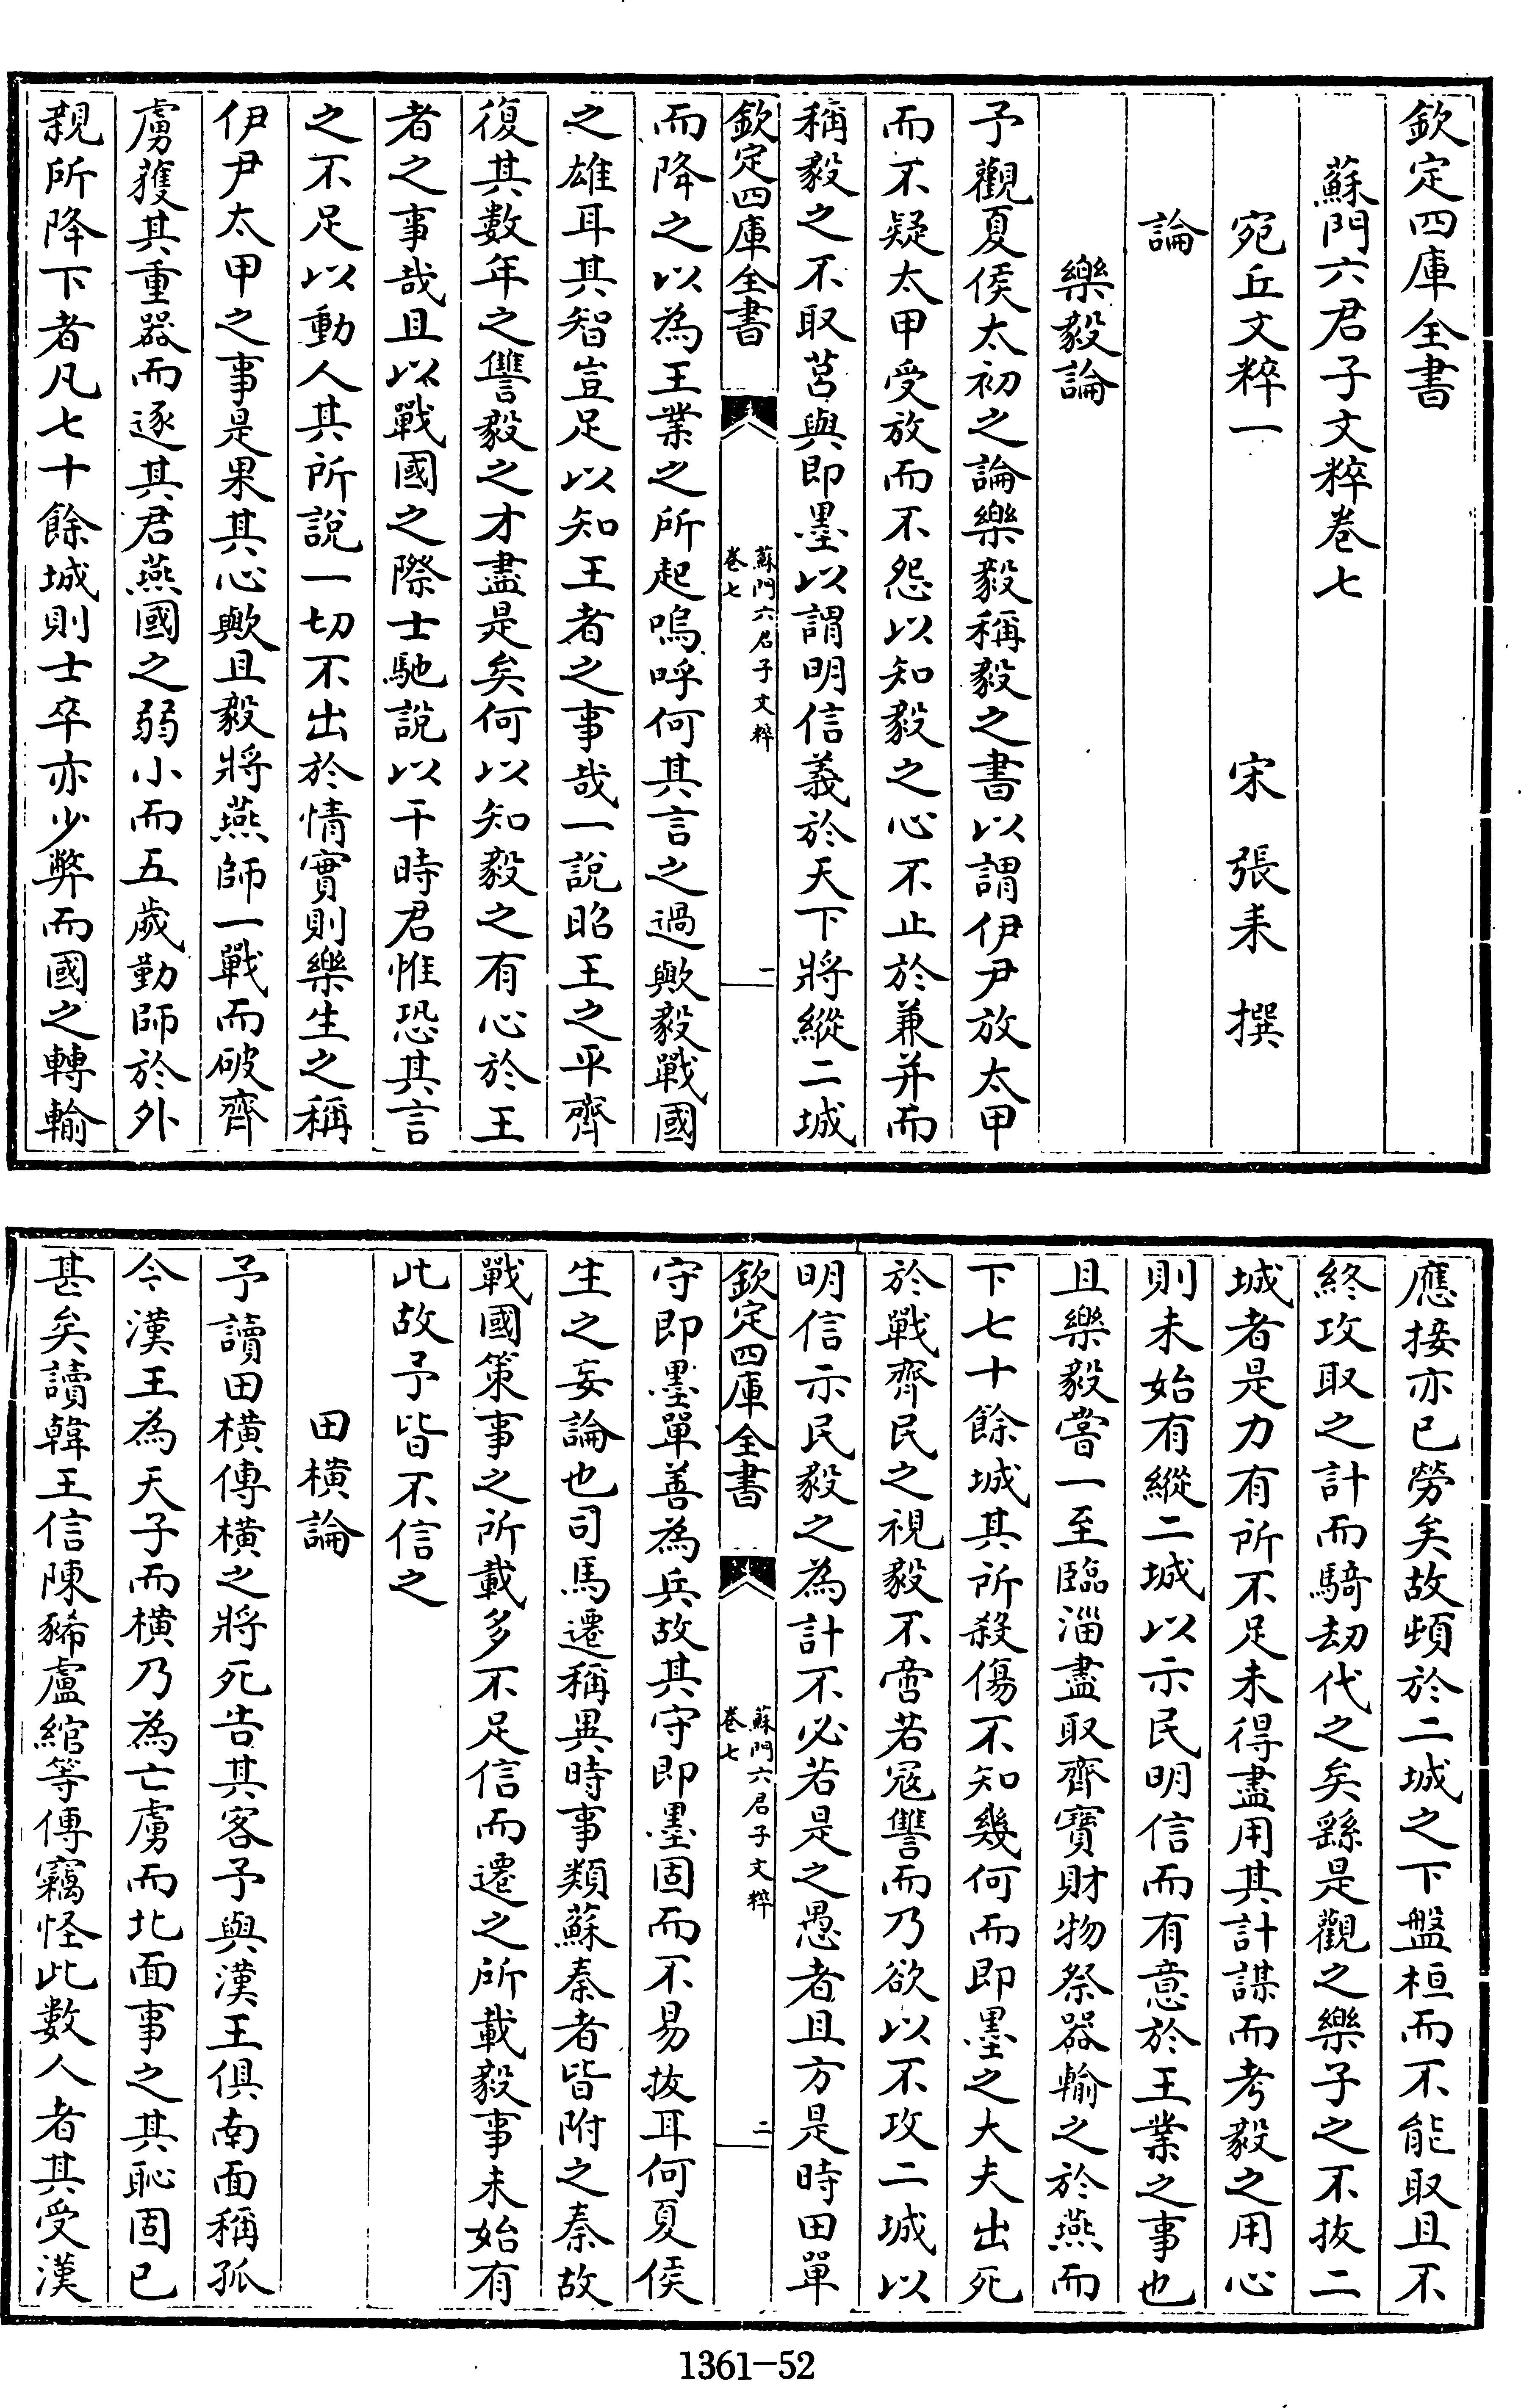 欽定四庫全書
蘇門六君子文粹卷七
宛丘文粹一 宋 張耒 撰
論
樂毅論
予觀夏侯太初之論樂毅稱毅之書以謂伊尹放太甲
而不疑太甲受放而不怨以知毅之心不止於兼并而
稱毅之不取莒與即墨以謂明信義於天下將縱二城
欽定四庫全書
蘇門六君子文粹
卷七
一
而降之以為王業之所起嗚呼何其言之過歟毅戰國
之雄耳其智豈足以知王者之事哉一說昭王之平齊
復其數年之讐毅之才盡是矣何以知毅之有心於王
者之事哉且以戰國之際士馳說以干時君惟恐其言
之不足以動人其所說一切不出於情實則樂生之稱
伊尹太甲之事是果其心歟且毅將燕師一戰而破齊
虜獲其重器而逐其君燕國之弱小而五歲勤師於外
親所降下者凡七十餘城則士卒亦少弊而國之轉輸
應接亦已勞矣故頓於二城之下盤桓而不能取且不
終攻取之計而騎劫代之矣繇是觀之樂子之不拔二
城者是力有所不足未得盡用其計謀而考毅之用心
則未始有縱二城以示民明信而有意於王業之事也
且樂毅嘗一至臨淄盡取齊寶財物祭器輸之於燕而
下七十餘城其所殺傷不知幾何而即墨之大夫出死
於戰齊民之視毅不啻若寇讐而乃欲以不攻二城以
明信示民毅之為計不必若是之愚者且方是時田單
欽定四庫全書
蘇門六君子文粹
卷七
二
守即墨單善為兵故其守即墨固而不易拔耳何夏侯
生之妄論也司馬遷稱異時事類蘇秦者皆附之秦故
戰國策事之所載多不足信而遷之所載毅事未始有
此故予皆不信之
田橫論
予讀田橫傳橫之將死告其客予與漢王俱南面稱孤
今漢王為天子而橫乃為亡虜而北面事之其恥固已
甚矣讀韓王信陳豨盧綰等傳竊怪此數人者其受漢
1361-52